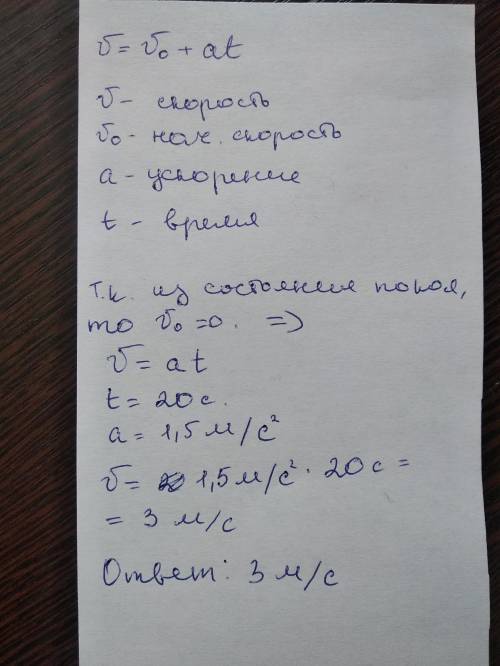 v = v₀ + at
v – скорость
v₀ - нач. скорость
a - ускорение
t - время
т.к. из состояния покоя,
то v₀ = 0. =>
v = at
t = 20 с.
a = 1,5 м/с²
v = 1,5 м/с² · 20 с =
= 3 м/с
Ответ: 3 м/с